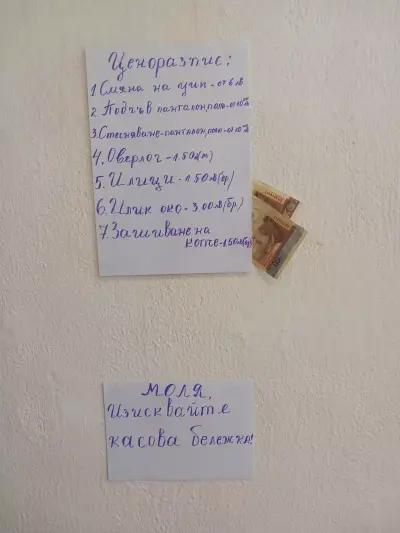 Ценоразпис:
1 Смяна на цип - от 6 лв
2 Подгъв панталон, пола - от 10 лв
3. Стесняване - панталон, пола - от 10 лв
4. Оверлог - 1.50 лв(м)
5. Илици - 1.50 лв(бр)
6. Илик око - 3.00 лв(бр.)
7. Зашиване на
копче - 1.50 лв(бр)
МОЛЯ,
Изисквайте
касова бележка!